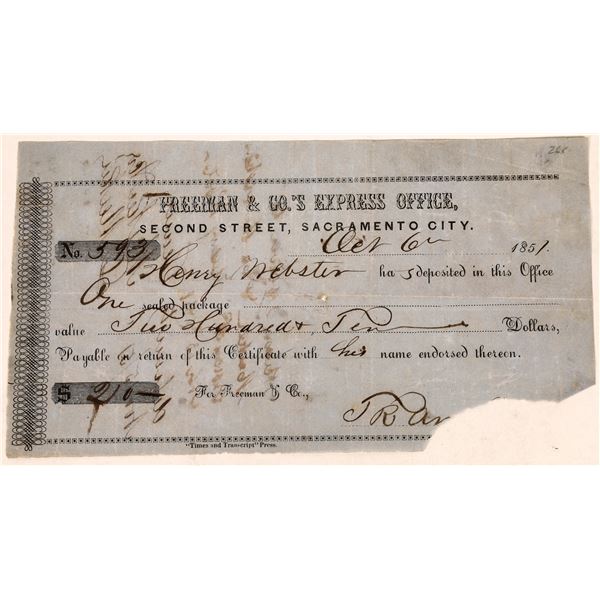 268
FREEMAN & CO.'S EXPRESS OFFICE,
SECOND STREET, SACRAMENTO CITY.
No. 593 Oct 6th 1851.
Henry Webster ha s deposited in this Office
One sealed package
value Two Hundred & Ten Dollars,
Payable on return of this Certificate with his name endorsed thereon.
$ 210 — For Freeman & Co.,
"Times and Transcript" Press.